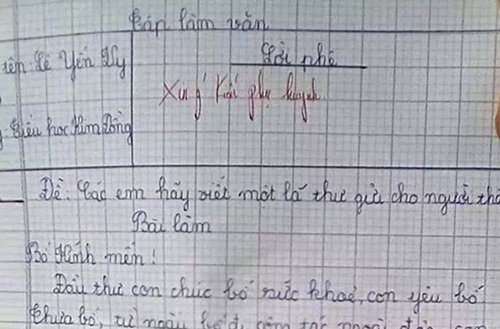 Tập làm văn
tên: Lê Yến Vy
Lời phê
Xin ý kiến phụ huynh
Tiểu học Kim Đồng
Đề: Các em hãy viết một lá thư gửi cho người thâ
Bài làm
Bố kính mến!
Đầu thư con chúc bố sức khoẻ, con yêu bố
Chưa bố, từ ngày bố đi